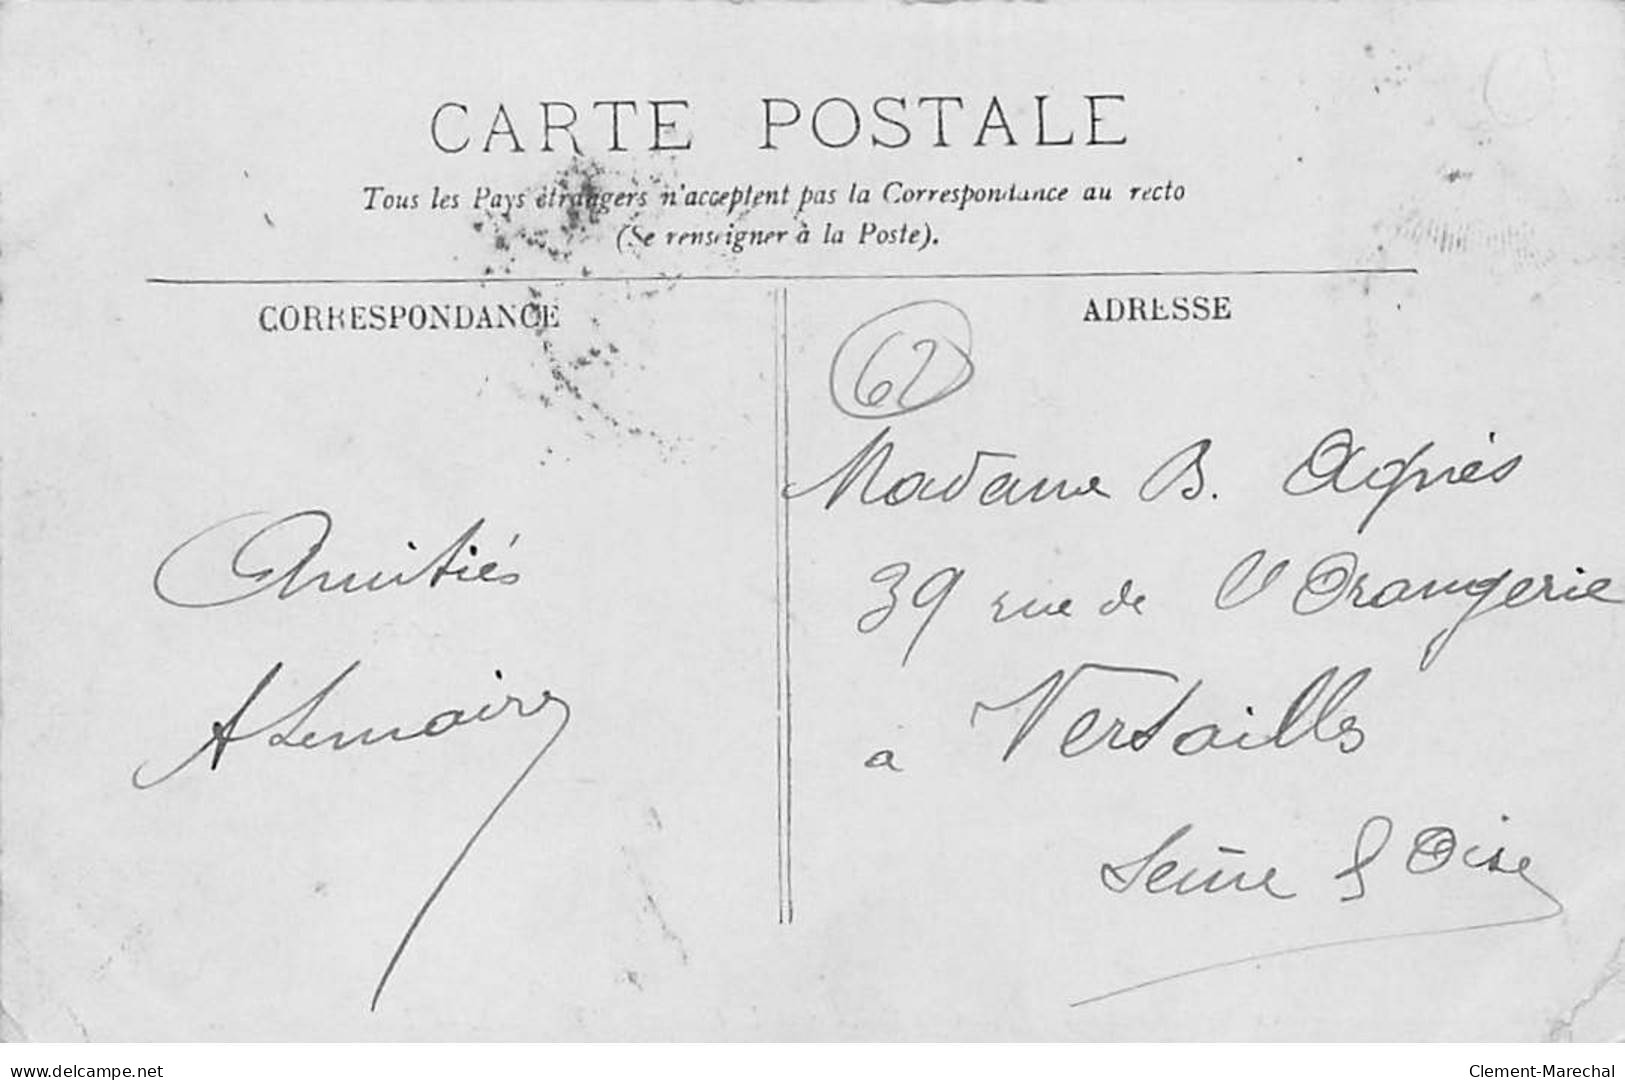 CARTE POSTALE
Tous les Pays étrangers n'acceptent pas la Correspondance au recto
(Se renseigner à la Poste).
CORRESPONDANCE
ADRESSE
62
Amitiés
A Lemaire
Madame B. Agnès
39 rue de l'Orangerie
à Versailles
Seine & Oise
delcampe.net
Clement-Marechal